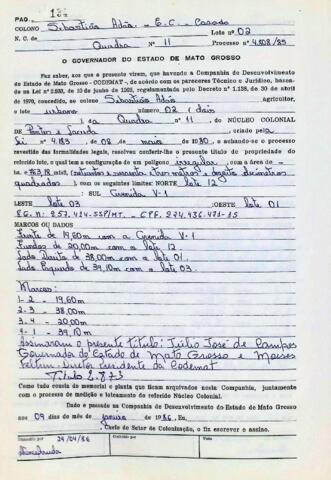 PAG. 132
COLONO Sebastião Adão - E.C. - Casado
Lote nº 02
N. C. de
Quadra nº 11 Processo nº 4.508/85
O GOVERNADOR DO ESTADO DE MATO GROSSO
Faz saber, aos que a presente virem, que havendo a Companhia de Desenvolvimento
do Estado de Mato Grosso - CODEMAT -, de acordo com os pareceres Técnico e Jurídico, basea-
da na Lei nº 2.933, de 10 de junho de 1923, regulamentada pelo Decreto nº 1.138, de 30 de abril
de 1970, concedido, ao colono Sebastião Adão agricultor,
o lote urbano número 02 (dois)
da Quadra nº 11, do NÚCLEO COLONIAL
de Pontes e Lacerda, criado pela
Lei nº 4.193, de 08 de maio de 1980, e achando-se o processo
revestido das formalidades legais, resolveu conferir-lhe o presente título de propriedade do
referido lote, o qual tem a configuração de um polígono irregular, com a área de
com os seguintes limites: NORTE lote 12
SUL Avenida V-1
LESTE lote 03 OESTE lote 01
RG. nº 257.414-SSP/MT. - CPF. 274.436.471-15
MARCOS OU DADOS
Frente de 19,60m com a Avenida V-1
Fundos de 20,00m com o lote 12
Lado Direito de 38,00m com o lote 01.
Lado Esquerdo de 39,10m com o lote 03.
Marcos:
1 - 2 - 19,60m
2 - 3 - 38,00m
3 - 4 - 20,00m
4 - 1 - 39,10m
Assinaram o presente título: Júlio José de Campos
Governador do Estado de Mato Grosso e Moises
Feltrin - Diretor Presidente da Codemat
Título 2.873
Como tudo consta do memorial e planta que ficam arquivados nesta Companhia, juntamente
com o processo de medição e loteamento do referido Núcleo Colonial.
Dado e passado na Companhia de Desenvolvimento do Estado de Mato Grosso
aos 09 dias do mês de
de 1986. Eu,
, Chefe do Setor de Colonização, o fiz escrever e assino.
29/04/86